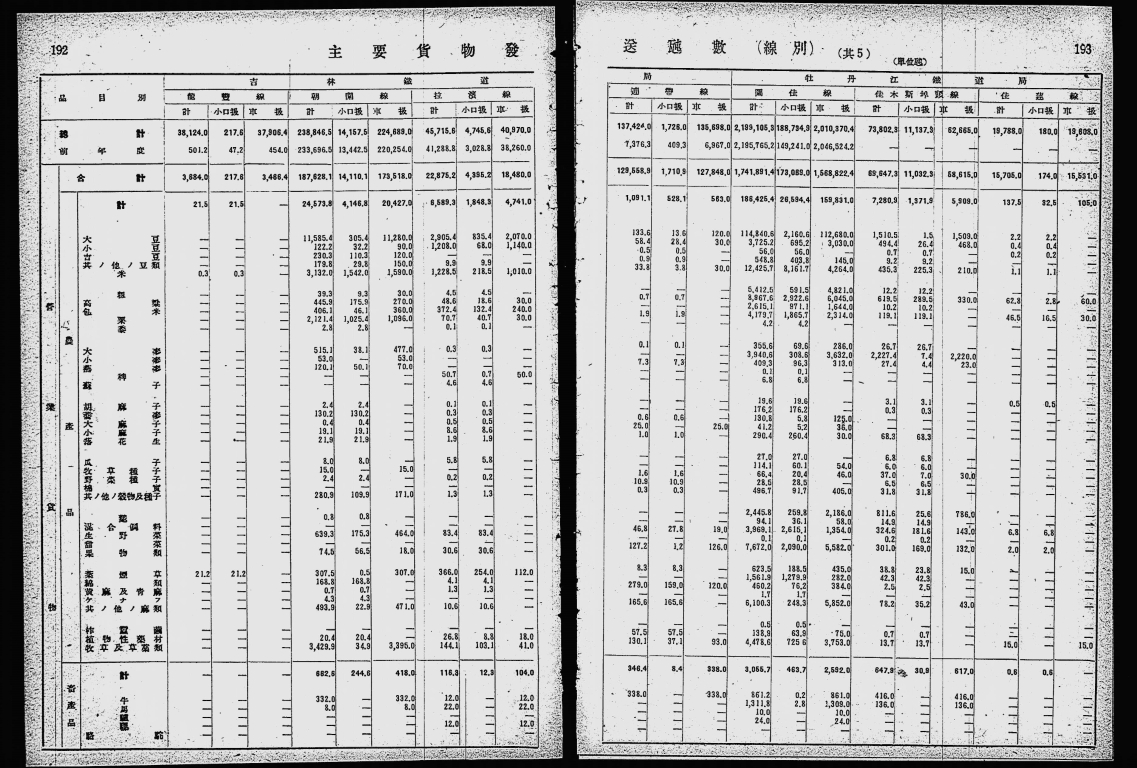 192
主要貨物發
吉林鐵道
品目別 龍豐線 朝開線 拉濱線
計 小口扱 車扱 計 小口扱 車扱 計 小口扱 車扱
總計 38,124.0 217.6 37,906.4 238,846.5 14,157.5 224,689.0 45,715.6 4,745.6 40,970.0
前年度 501.2 47.2 454.0 233,696.5 13,442.5 220,254.0 41,288.8 3,028.8 38,260.0
合計 3,684.0 217.6 3,466.4 187,628.1 14,110.1 173,518.0 22,875.2 4,395.2 18,480.0
計 21.5 21.5 — 24,573.8 4,146.8 20,427.0 6,589.3 1,848.3 4,741.0
大豆 — — — 11,585.4 305.4 11,280.0 2,905.4 835.4 2,070.0
小豆 — — — 122.2 32.2 90.0 1,208.0 68.0 1,140.0
吉豆 — — — 230.3 110.3 120.0 — — —
其ノ他ノ豆類 — — — 179.8 29.8 150.0 9.9 9.9 —
米 0.3 0.3 — 3,132.0 1,542.0 1,590.0 1,228.5 218.5 1,010.0
籾 — — — 39.3 9.3 30.0 4.5 4.5 —
高粱 — — — 445.9 175.9 270.0 48.6 18.6 30.0
包米 — — — 406.1 46.1 360.0 372.4 132.4 240.0
粟 — — — 2,121.4 1,025.4 1,096.0 70.7 40.7 30.0
黍 — — — 2.8 2.8 — 0.1 0.1 —
大麥 — — — 515.1 38.1 477.0 0.3 0.3 —
小麥 — — — 53.0 — 53.0 — — —
蕎麥 — — — 120.1 50.1 70.0 — — —
稗 — — — — — — 50.7 0.7 50.0
蘇子 — — — — — — 4.6 4.6 —
胡麻子 — — — 2.4 2.4 — 0.1 0.1 —
130.2 130.2 — 0.3 0.3 —
大麻子 — — — 0.4 0.4 — 0.5 0.5 —
小麻子 — — — 19.1 19.1 — 8.6 8.6 —
落花生 — — — 21.9 21.9 — 1.9 1.9 —
瓜子 — — — 8.0 8.0 — 5.8 5.8 —
牧草種子 — — — 15.0 — 15.0 — — —
野菜種子 — — — 2.4 2.4 — 0.2 0.2 —
棉實 — — — — — — — — —
其ノ他ノ穀物及種子 — — — 280.9 109.9 171.0 1.3 1.3 —
麩 — — — 0.8 0.8 — — — —
混合飼料 — — — — — — — — —
生野菜 — — — 639.3 175.3 464.0 83.4 83.4 —
果物類 — — — 74.5 56.5 18.0 30.6 30.6 —
葉煙草 21.2 21.2 — 307.5 0.5 307.0 366.0 254.0 112.0
綿類 — — — 168.8 168.8 — 4.1 4.1 —
黃麻及青麻 — — — 0.7 0.7 — 1.3 1.3 —
ケナフ — — — 4.3 4.3 — — — —
其ノ他ノ麻類 — — — 493.9 22.9 471.0 10.6 10.6 —
柞蠶繭 — — — — — — — — —
植物性藥材 — — — 20.4 20.4 — 26.8 8.8 18.0
牧草及草藁類 — — — 3,429.9 34.9 3,395.0 144.1 103.1 41.0
計 — — — 662.6 244.6 418.0 116.3 12.3 104.0
牛 — — — 332.0 — 332.0 12.0 — 12.0
馬 — — — 8.0 — 8.0 22.0 — 22.0
驢 — — — — — — — — —
騾 — — — — — — 12.0 — 12.0
駱駝 — — — — — — — — —
農產品
畜產品
貨物
送噸數(線別)
(共5)
(單位瓲)
193
局 牡丹江鐵道局
計 小口扱 車扱 計 小口扱 車扱 計 小口扱 車扱 計 小口扱 車扱
137,424.0 1,728.0 135,696.0 2,199,105.3 188,734.9 2,010,370.4 73,802.3 11,137.3 62,665.0 19,788.0 180.0 19,608.0
7,376.3 409.3 6,967.0 2,195,765.2 149,241.0 2,046,524.2 — — — — — —
129,558.9 1,710.9 127,848.0 1,741,891.4 173,069.0 1,568,822.4 69,647.3 11,032.3 58,615.0 15,705.0 174.0 15,531.0
1,091.1 528.1 563.0 186,425.4 26,594.4 159,831.0 7,280.9 1,371.9 5,909.0 137.5 32.5 105.0
133.6 13.6 120.0 114,840.6 2,160.6 112,680.0 1,510.5 1.5 1,509.0 2.2 2.2 —
58.4 28.4 30.0 3,725.2 695.2 3,030.0 494.4 26.4 468.0 0.4 0.4 —
0.5 0.5 — 56.0 56.0 — 0.7 0.7 — 0.2 0.2 —
0.9 0.9 — 548.8 403.8 145.0 9.2 9.2 — — — —
33.8 3.8 30.0 12,425.7 8,161.7 4,264.0 435.3 225.3 210.0 1.1 1.1 —
— — — 5,412.5 591.5 4,821.0 12.2 12.2 — — — —
0.7 0.7 — 8,967.6 2,922.6 6,045.0 619.5 289.5 330.0 62.8 2.8 60.0
— — — 2,615.1 971.1 1,644.0 10.2 10.2 — — — —
1.9 1.9 — 4,179.7 1,865.7 2,314.0 119.1 119.1 — 46.5 16.5 30.0
— — — 4.2 4.2 — — — — — — —
0.1 0.1 — 355.6 69.6 286.0 26.7 26.7 — — — —
— — — 3,940.6 308.6 3,632.0 2,227.4 7.4 2,220.0 — — —
7.3 7.3 — 409.3 96.3 313.0 27.4 4.4 23.0 — — —
— — — 0.1 0.1 — — — — — — —
— — — 6.8 6.8 — — — — — — —
— — — 19.6 19.6 — 3.1 3.1 — 0.5 0.5 —
— — — 176.2 176.2 — 0.3 0.3 — — — —
0.6 0.6 — 130.8 5.8 125.0 — — — — — —
25.0 — 25.0 41.2 5.2 36.0 — — — — — —
1.0 1.0 — 290.4 260.4 30.0 68.3 68.3 — — — —
— — — 27.0 27.0 — 6.8 6.8 — — — —
— — — 114.1 60.1 54.0 6.0 6.0 — — — —
1.6 1.6 — 66.4 20.4 46.0 37.0 7.0 30.0 — — —
10.9 10.9 — 28.5 28.5 — 6.5 6.5 — — — —
0.3 0.3 — 496.7 91.7 405.0 31.8 31.8 — — — —
— — — 2,445.8 259.8 2,186.0 811.6 25.6 786.0 — — —
— — — 94.1 36.1 58.0 14.9 14.9 — — — —
46.8 27.8 19.0 3,969.1 2,615.1 1,354.0 324.6 181.6 143.0 6.8 6.8 —
— — — 0.1 0.1 — 0.2 0.2 — — — —
127.2 1.2 126.0 7,672.0 2,090.0 5,582.0 301.0 169.0 132.0 2.0 2.0 —
8.3 8.3 — 623.5 188.5 435.0 38.8 23.8 15.0 — — —
— — — 1,561.9 1,279.9 282.0 42.3 42.3 — — — —
279.0 159.0 120.0 460.2 76.2 384.0 2.5 2.5 — — — —
— — — 1.7 1.7 — — — — — — —
165.6 165.6 — 6,100.3 248.3 5,852.0 78.2 35.2 43.0 — — —
— — — 0.5 0.5 — — — — — — —
57.5 57.5 — 138.9 63.9 75.0 0.7 0.7 — — — —
130.1 37.1 93.0 4,478.6 725.6 3,753.0 13.7 13.7 — 15.0 — 15.0
346.4 8.4 338.0 3,055.7 463.7 2,592.0 647.9 30.9 617.0 0.6 0.6 —
338.0 — 338.0 861.2 0.2 861.0 416.0 — 416.0 — — —
— — — 1,311.8 2.8 1,309.0 136.0 — 136.0 — — —
— — — 10.0 — 10.0 — — — — — —
— — — 24.0 — 24.0 — — — — — —